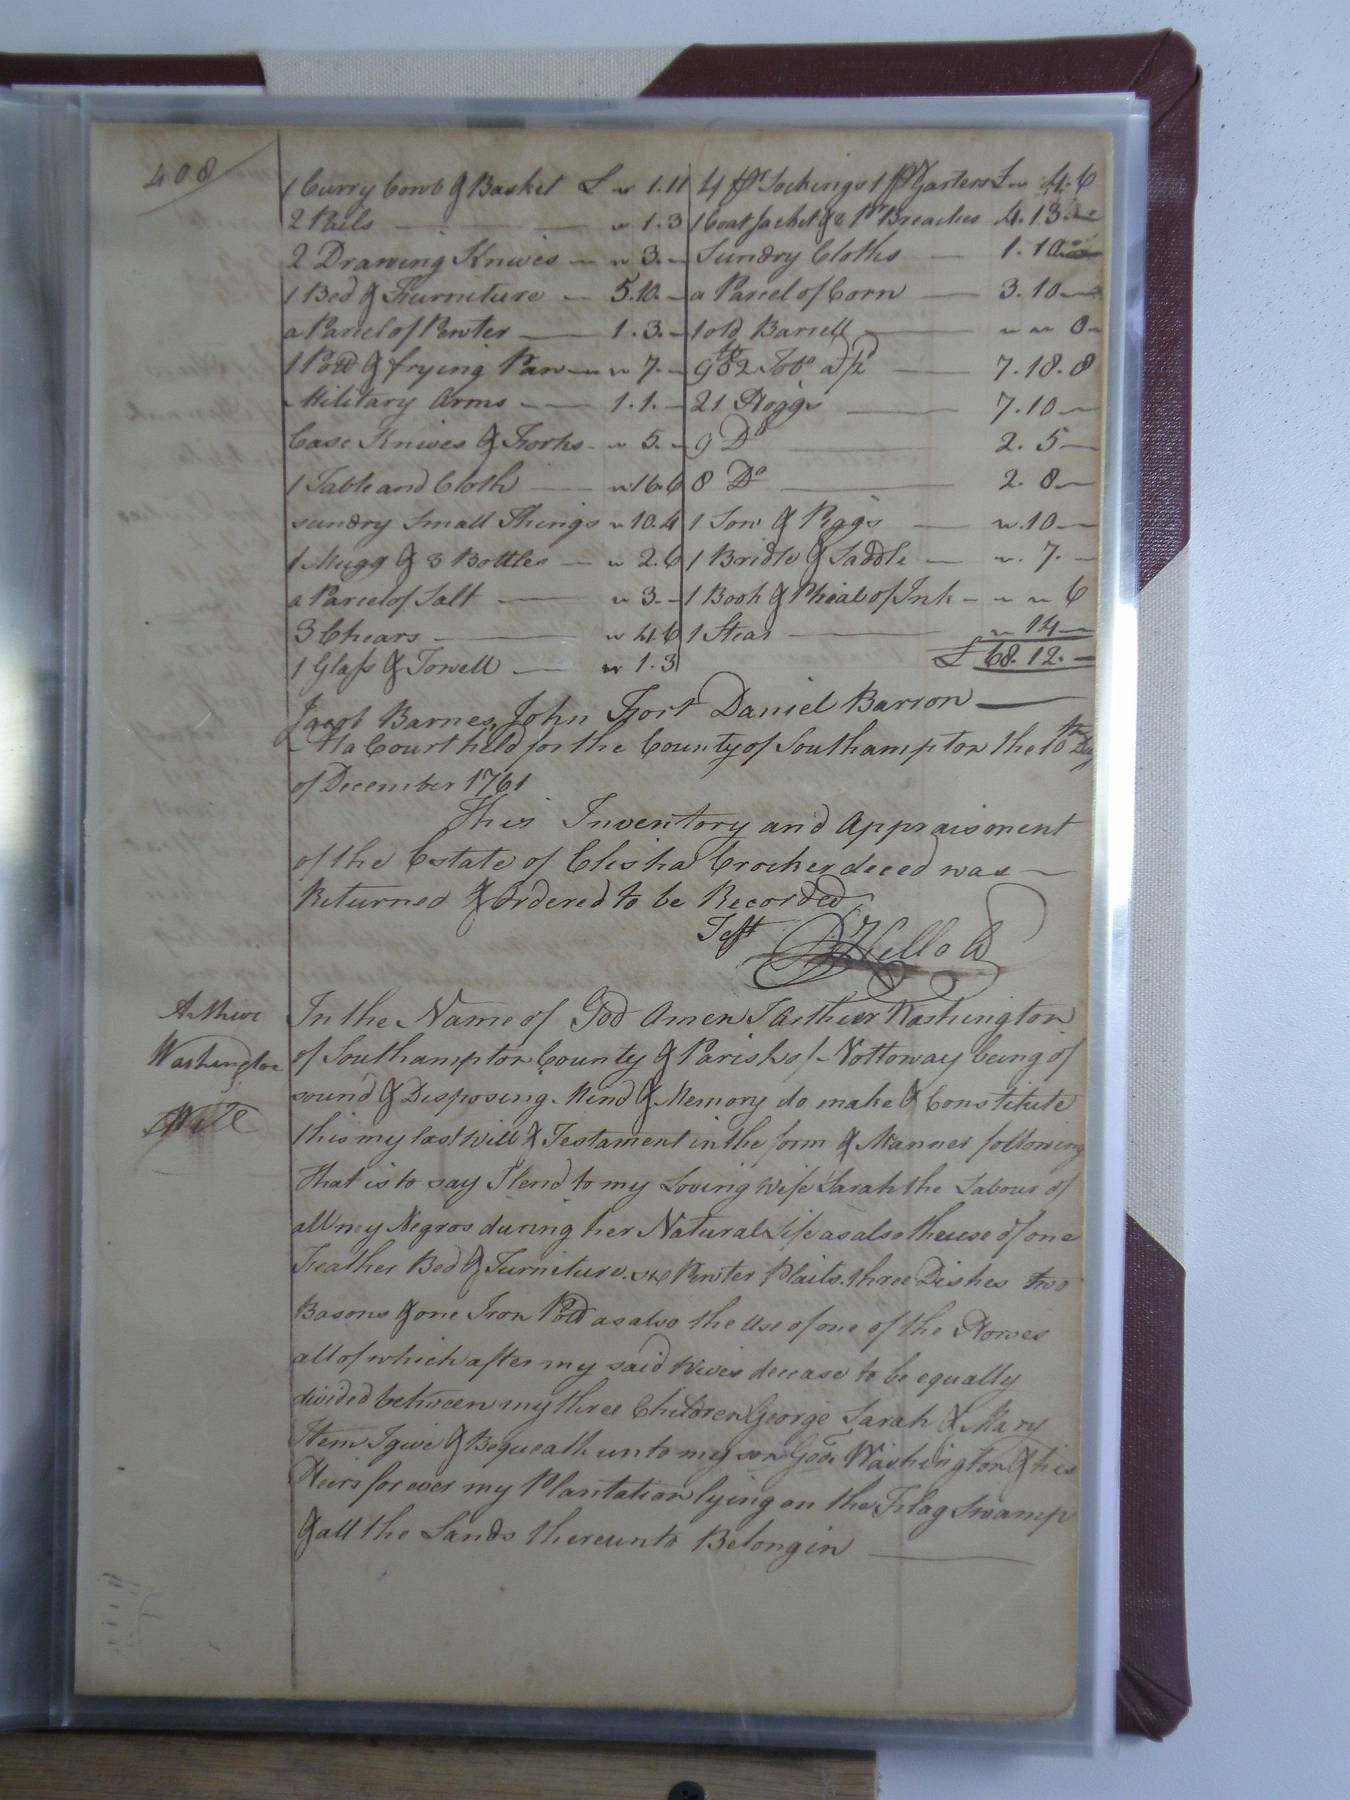 408
1 Curry Comb & Basket £ " 1.11
2 Pails " 1.3
2 Drawing Knives " 3.
1 Bed & Furniture 5.10.
a Parcel of Pewter 1.3.
1 Pott & frying Pan " 7.
Military Arms 1.1.
Case Knives & Forks " 5.
1 Table and Cloth " 16.6
sundry Small Things " 10.4
1 Mugg & 3 Bottles " 2.6
a Parcel of Salt " 3.
3 Chears " 4.6
1 Glass & Towell " 1.3
4 pr Stockings 1 pr Garters £ " 4.6
1 Coat Jacket & 2 Pr Breaches 4.13.
Sundry Cloths 1.10
a Parcel of Corn 3.10
1 old Barrell " " 8
952 Tobo 7.18.8
21 Hoggs 7.10
9 Do 2.5
8 Do 2.8
1 Sow & Piggs " .10
1 Bridle & Saddle " . 7.
1 Book & Phial of Ink " " 6
1 Stear " 14
£ 68.12.
Jacob Barnes, John Fort Daniel Barron
At a Court held for the County of Southampton the 10th Day
of December 1761
This Inventory and Appraisment
of the Estate of Elisha Crocker deced was
Returned & Ordered to be Recorded
Test R Kello Cl
Arthur
Washington
Will
In the Name of God Amen I Arthur Washington
of Southampton County & Parish of Nottoway being of
sound & Disposing Mind & Memory do make & Constitute
this my last Will & Testament in the form & Manner following
that is to say I lend to my Loving Wife Sarah the Labour of
all my Negros during her Natural Life as also the use of one
Feather Bed & Furniture six Pewter Plaits three Dishes two
Basons & one Iron Pott as also the Use of one of the Horses
all of which after my said Wives decease to be equally
divided between my three Children George Sarah & Mary
Item I give & Bequeath unto my son Geo. Washington & his
Heirs for ever my Plantation lying on the Flag Swamp
& all the Lands thereunto Belongin